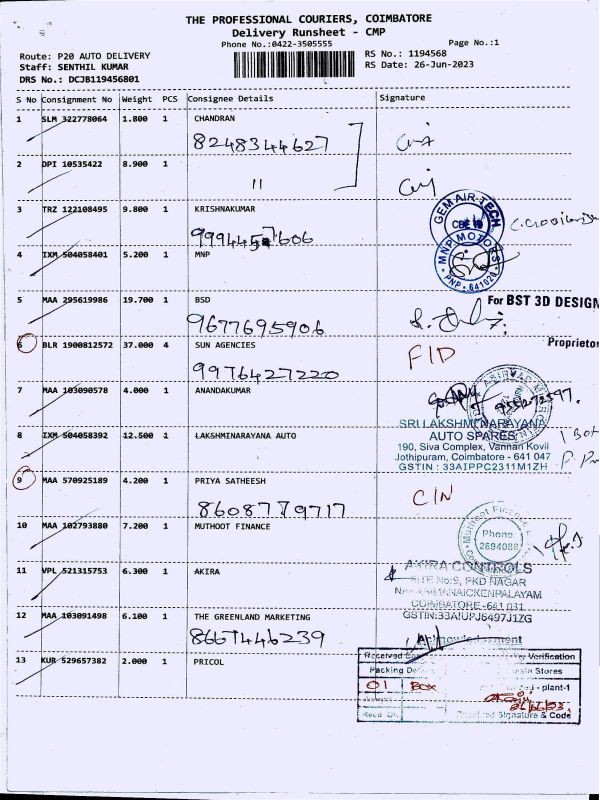 THE PROFESSIONAL COURIERS, COIMBATORE
Delivery Runsheet - CMP
Phone No.:0422-3505555 Page No.:1
Route: P20 AUTO DELIVERY RS No.: 1194568
Staff: SENTHIL KUMAR RS Date: 26-Jun-2023
DRS No.: DCJB119456801
S No Consignment No Weight PCS Consignee Details Signature
1 SLM 322778064 1.800 1 CHANDRAN
8248344627
2 DPI 10535422 8.900 1
11
3 TRZ 122108495 9.800 1 KRISHNAKUMAR
GEM AIR-TECH
CBE
9994457606
4 IXM 504058401 5.200 1 MNP
MNP MOTORS
PNP - 641020
5 MAA 295619986 19.700 1 BSD
For BST 3D DESIGN
9677695906
Proprietor
6 BLR 1900812572 37.000 4 SUN AGENCIES
FID
9976427220
7 MAA 103090578 4.000 1 ANANDAKUMAR
8 IXM 504058392 12.500 1 LAKSHMINARAYANA AUTO
SRI LAKSHMI NARAYANA
AUTO SPARES
190, Siva Complex, Vannan Kovil
Jothipuram, Coimbatore - 641 047
GSTIN : 33AIPPC2311M1ZH
9 MAA 570925189 4.200 1 PRIYA SATHEESH
CIN
8608779717
10 MAA 102793880 7.200 1 MUTHOOT FINANCE
Muthoot Finance
Phone
2694088
11 VPL 521315753 6.300 1 AKIRA
AKIRA CONTROLS
SITE No:9, PKD NAGAR
COIMBATORE-641 031
GSTIN:33AIUPJ6497J1ZG
12 MAA 103091498 6.100 1 THE GREENLAND MARKETING
8667446239
Acknowledgement
13 KUR 529657382 2.000 1 PRICOL
Received
Verification
Packing
Stores
01 BOX
plant-1
Signature & Code